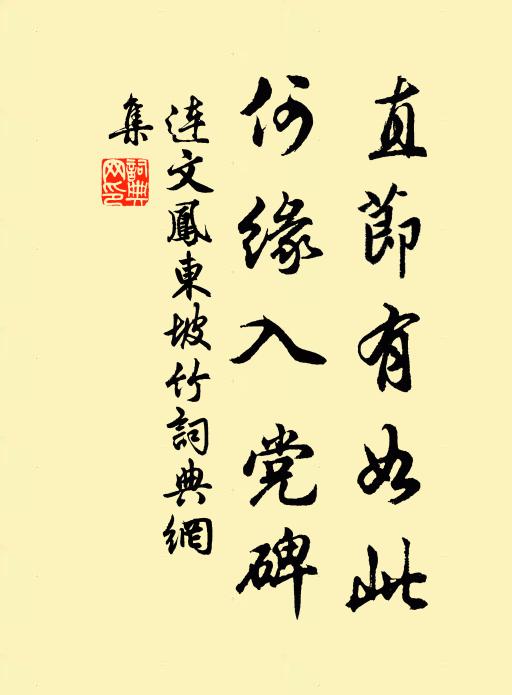 直節有如此
何緣入党碑
連文鳳東坡竹詞典網
集
詞典網印